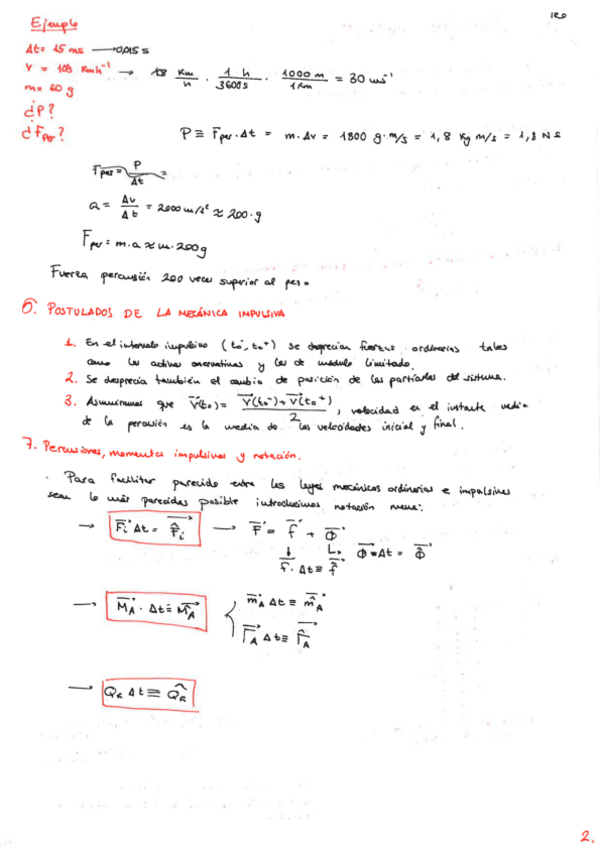 IRO
Ejemplo
Δt = 15 ms → 0,015 s
V = 108 Km h⁻¹ → 108 Km/h · 1 h/3600 s · 1000 m/1 Km = 30 ms⁻¹
m = 60 g
¿P?
¿F_per? P ≡ F_per · Δt = m · Δv = 1800 g · m/s = 1,8 Kg m/s = 1,8 N s
F_per = P/Δt =
a = Δv/Δt = 2000 m/s² ≈ 200 · g
F_per = m · a ≈ m · 200 g
Fuerza percusión 200 veces superior al peso
6. POSTULADOS DE LA MECÁNICA IMPULSIVA
1. En el intervalo impulsivo (t₀⁻, t₀⁺) se desprecian fuerzas ordinarias tales
como las activas conservativas y las de módulo limitado.
2. Se desprecia también el cambio de posición de las partículas del sistema.
3. Asumiremos que V⃗(t₀) = (V⃗(t₀⁻) + V⃗(t₀⁺))/2, velocidad en el instante medio
de la percusión es la media de las velocidades inicial y final.
7. Percusiones, momentos impulsivos y notación.
· Para facilitar parecido entre las leyes mecánicas ordinarias e impulsivas
sean lo más parecidas posible introducimos notación nueva:
→ F⃗ᵢ Δt = F̂⃗ᵢ → F⃗ = f⃗ + Φ⃗
f⃗ · Δt ≡ f̂⃗ Φ⃗ · Δt = Φ̂⃗
→ M⃗_A · Δt ≡ M̂⃗_A { m⃗_A Δt ≡ m̂⃗_A
Γ⃗_A Δt ≡ Γ̂⃗_A
→ Q_k Δt ≡ Q̂_k
2.